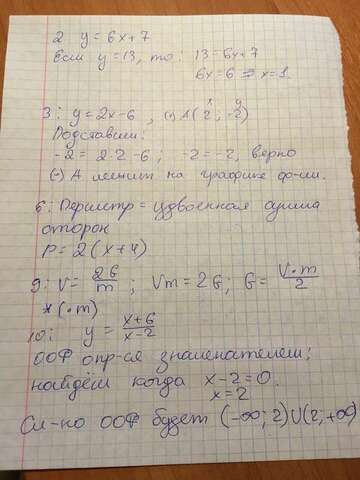 2 y = 6x + 7
Если y = 13, то: 13 = 6x + 7
6x = 6 => x = 1.
3: y = 2x - 6, (·) A (2; -2)
x y
Подставим:
-2 = 2·2 - 6; -2 = -2, верно
(·) А лежит на графике ф-ии.
6: Периметр = удвоенная сумма
сторон
P = 2(x + 4)
9: V = 2G/m; Vm = 2G; G = V·m/2
*(·m)
10: y = (x+6)/(x-2)
ООФ опр-ся знаменателем;
найдём когда x - 2 = 0.
x = 2
Сл-но ООФ будет (-∞; 2)U(2; +∞)